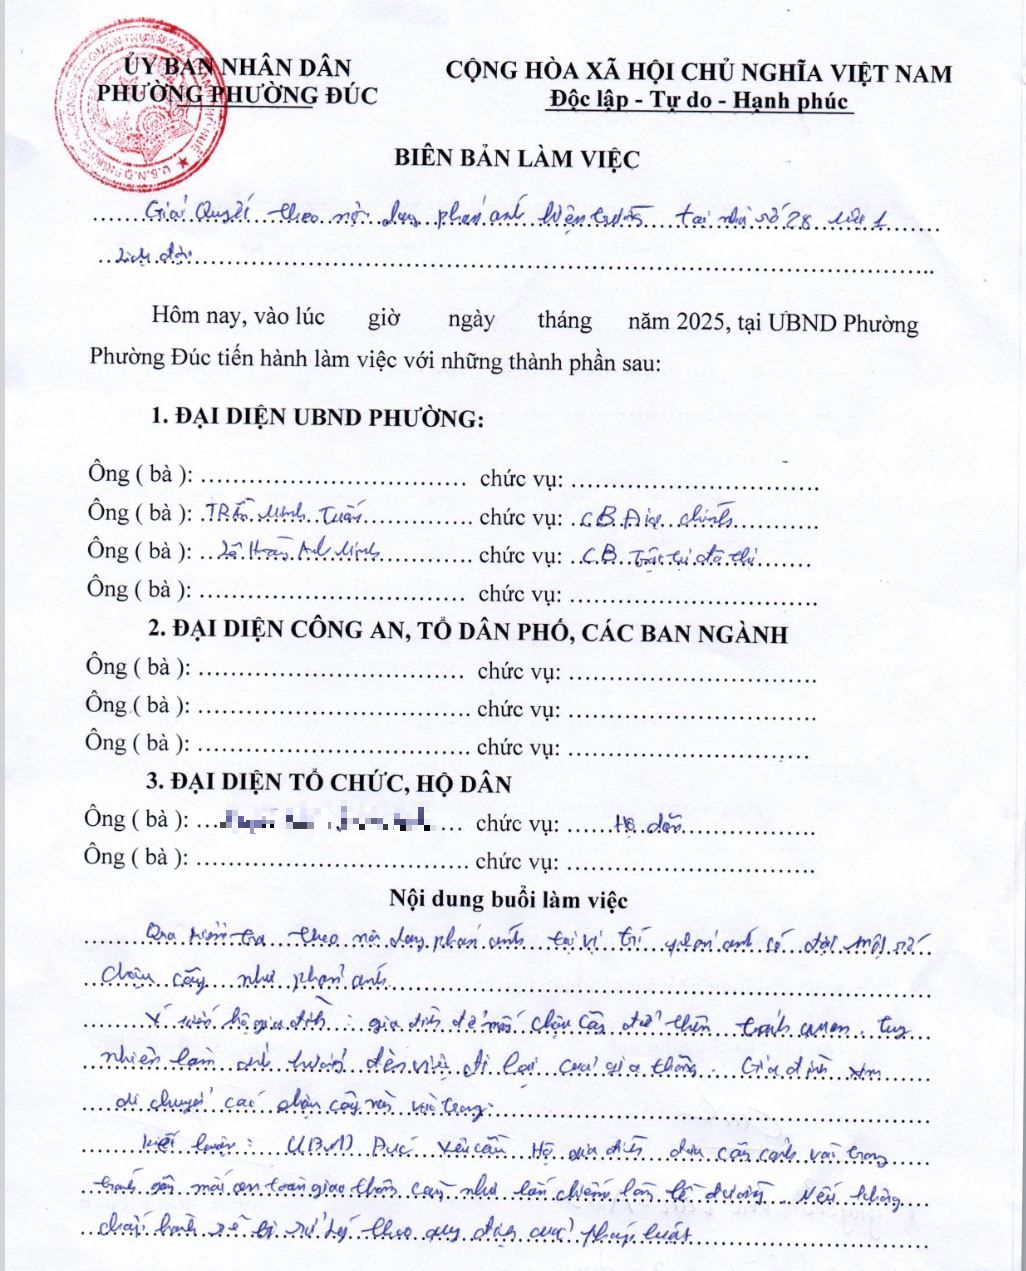 ỦY BAN NHÂN DÂN
PHƯỜNG PHƯỜNG ĐÚC
CỘNG HÒA XÃ HỘI CHỦ NGHĨA VIỆT NAM
Độc lập - Tự do - Hạnh phúc
BIÊN BẢN LÀM VIỆC
Giải Quyết theo nội dung phản ánh hiện trường tại nhà số 28 kiệt 1
Lịch đợi
Hôm nay, vào lúc giờ ngày tháng năm 2025, tại UBND Phường
Phường Đúc tiến hành làm việc với những thành phần sau:
1. ĐẠI DIỆN UBND PHƯỜNG:
Ông ( bà ): chức vụ:
Ông ( bà ): Trần Minh Tuấn chức vụ: CB. Địa chính
Ông ( bà ): Anh Minh chức vụ: CB. Trật tự đô thị
Ông ( bà ): chức vụ:
2. ĐẠI DIỆN CÔNG AN, TỔ DÂN PHỐ, CÁC BAN NGÀNH
Ông ( bà ): chức vụ:
Ông ( bà ): chức vụ:
Ông ( bà ): chức vụ:
3. ĐẠI DIỆN TỔ CHỨC, HỘ DÂN
Ông ( bà ): chức vụ: Hộ dân
Ông ( bà ): chức vụ:
Nội dung buổi làm việc
Qua kiểm tra theo nội dung phản ánh tại vị trí phản ánh có đặt một số
chậu cây như phản ánh
Ý kiến hộ gia đình: gia đình để mấy chậu cây để thêm tuy
nhiên làm ảnh hưởng đến việc đi lại của giao thông. Gia đình xin
di chuyển các chậu cây này vào trong.
Kết luận: UBND Đúc yêu cầu Hộ gia đình đưa cây cảnh vào trong
tránh gây mất an toàn giao thông cũng như lấn chiếm làn lề đường. Nếu không
chấp hành sẽ bị xử lý theo quy định của pháp luật